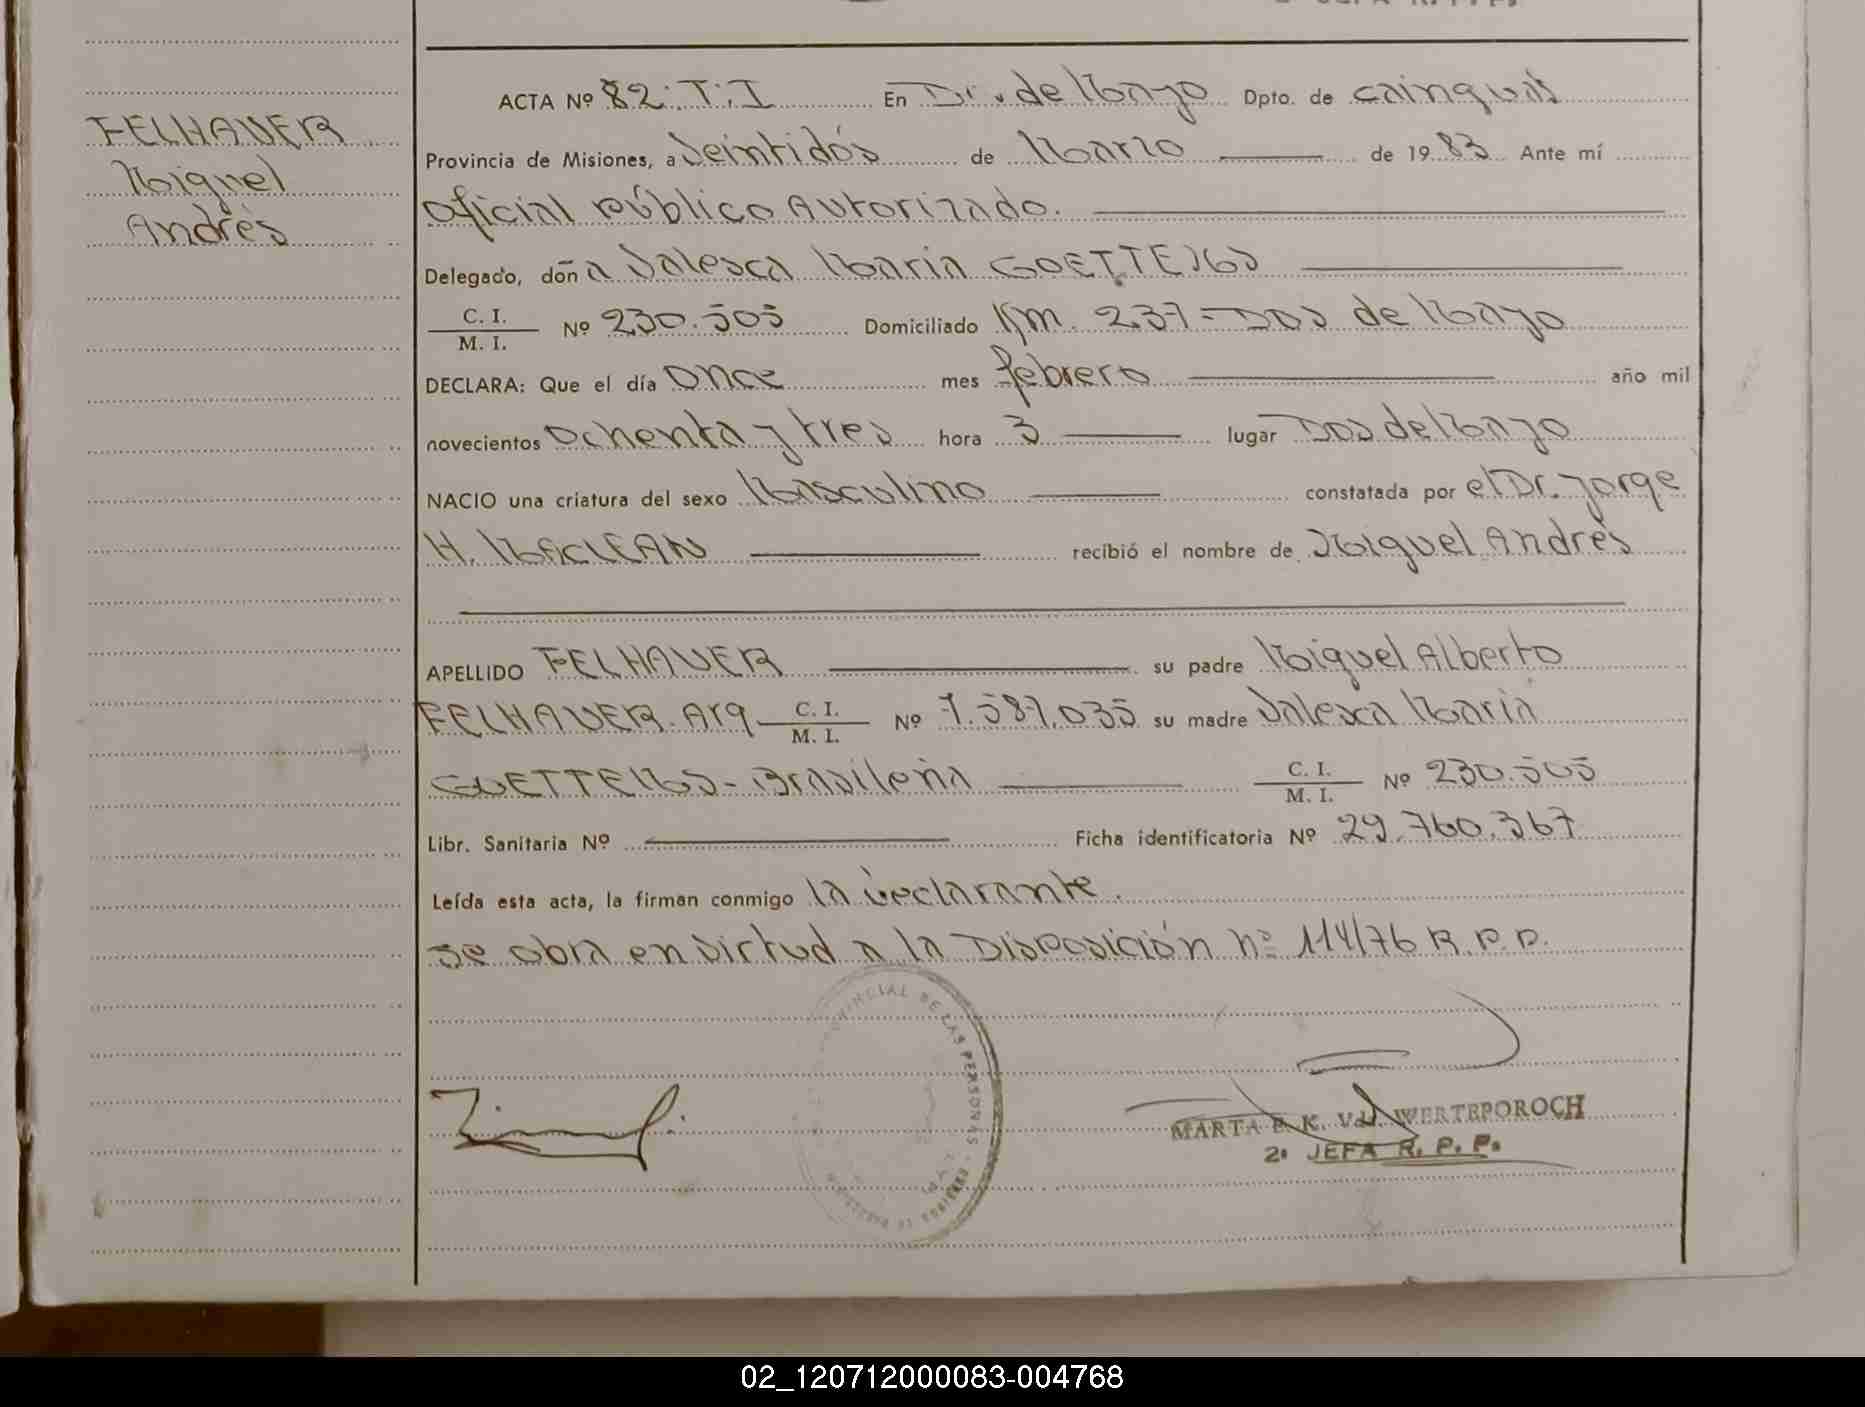 FELHAUER
Miguel
Andrés
ACTA Nº 82. T. I En Ds. de Mayo Dpto. de Cainguás
Provincia de Misiones, a Veintidós de Marzo de 1983 Ante mí
Oficial Público Autorizado.
Delegado, doña Valesca Maria GOETTEMS
C. I. / M. I. Nº 230.505 Domiciliado Km. 237 - Dos de Mayo
DECLARA: Que el día Once mes febrero año mil
novecientos Ochenta y tres hora 3 lugar Dos de Mayo
NACIO una criatura del sexo Masculino constatada por el Dr. Jorge
H. MACLEAN recibió el nombre de Miguel Andrés
APELLIDO FELHAUER su padre Miguel Alberto
FELHAUER. Arg C. I. / M. I. Nº 7.587.035 su madre Valesca Maria
GOETTEMS - Brasileña C. I. / M. I. Nº 230.505
Libr. Sanitaria Nº Ficha identificatoria Nº 29.760.367
Leída esta acta, la firman conmigo la declarante.
Se obra en virtud a la Disposición nº 114/76 R.P.P.
PROVINCIAL DE LAS PERSONAS
MARTA E. K. Vda. WERTEPOROCH
2º JEFA R. P. P.
02_120712000083-004768